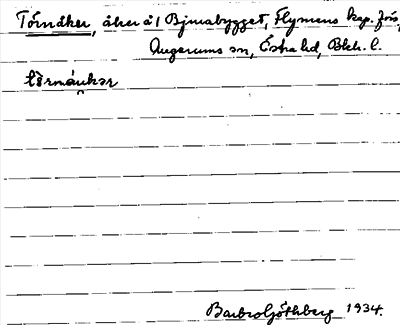 Törnåker, åker å 1 Bjurabygget, Flymens kap. förs,
Augerums sn, Östra hd, Blek. l.
Barbro Göthberg 1934.